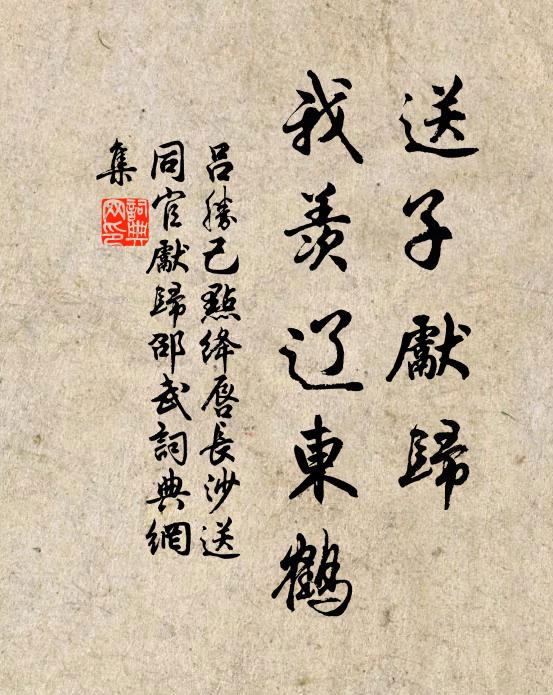 送子獻歸
我羨辽東鶴
呂勝己點绛唇長沙送
同官獻歸邵武詞典網
集
詞典
网印